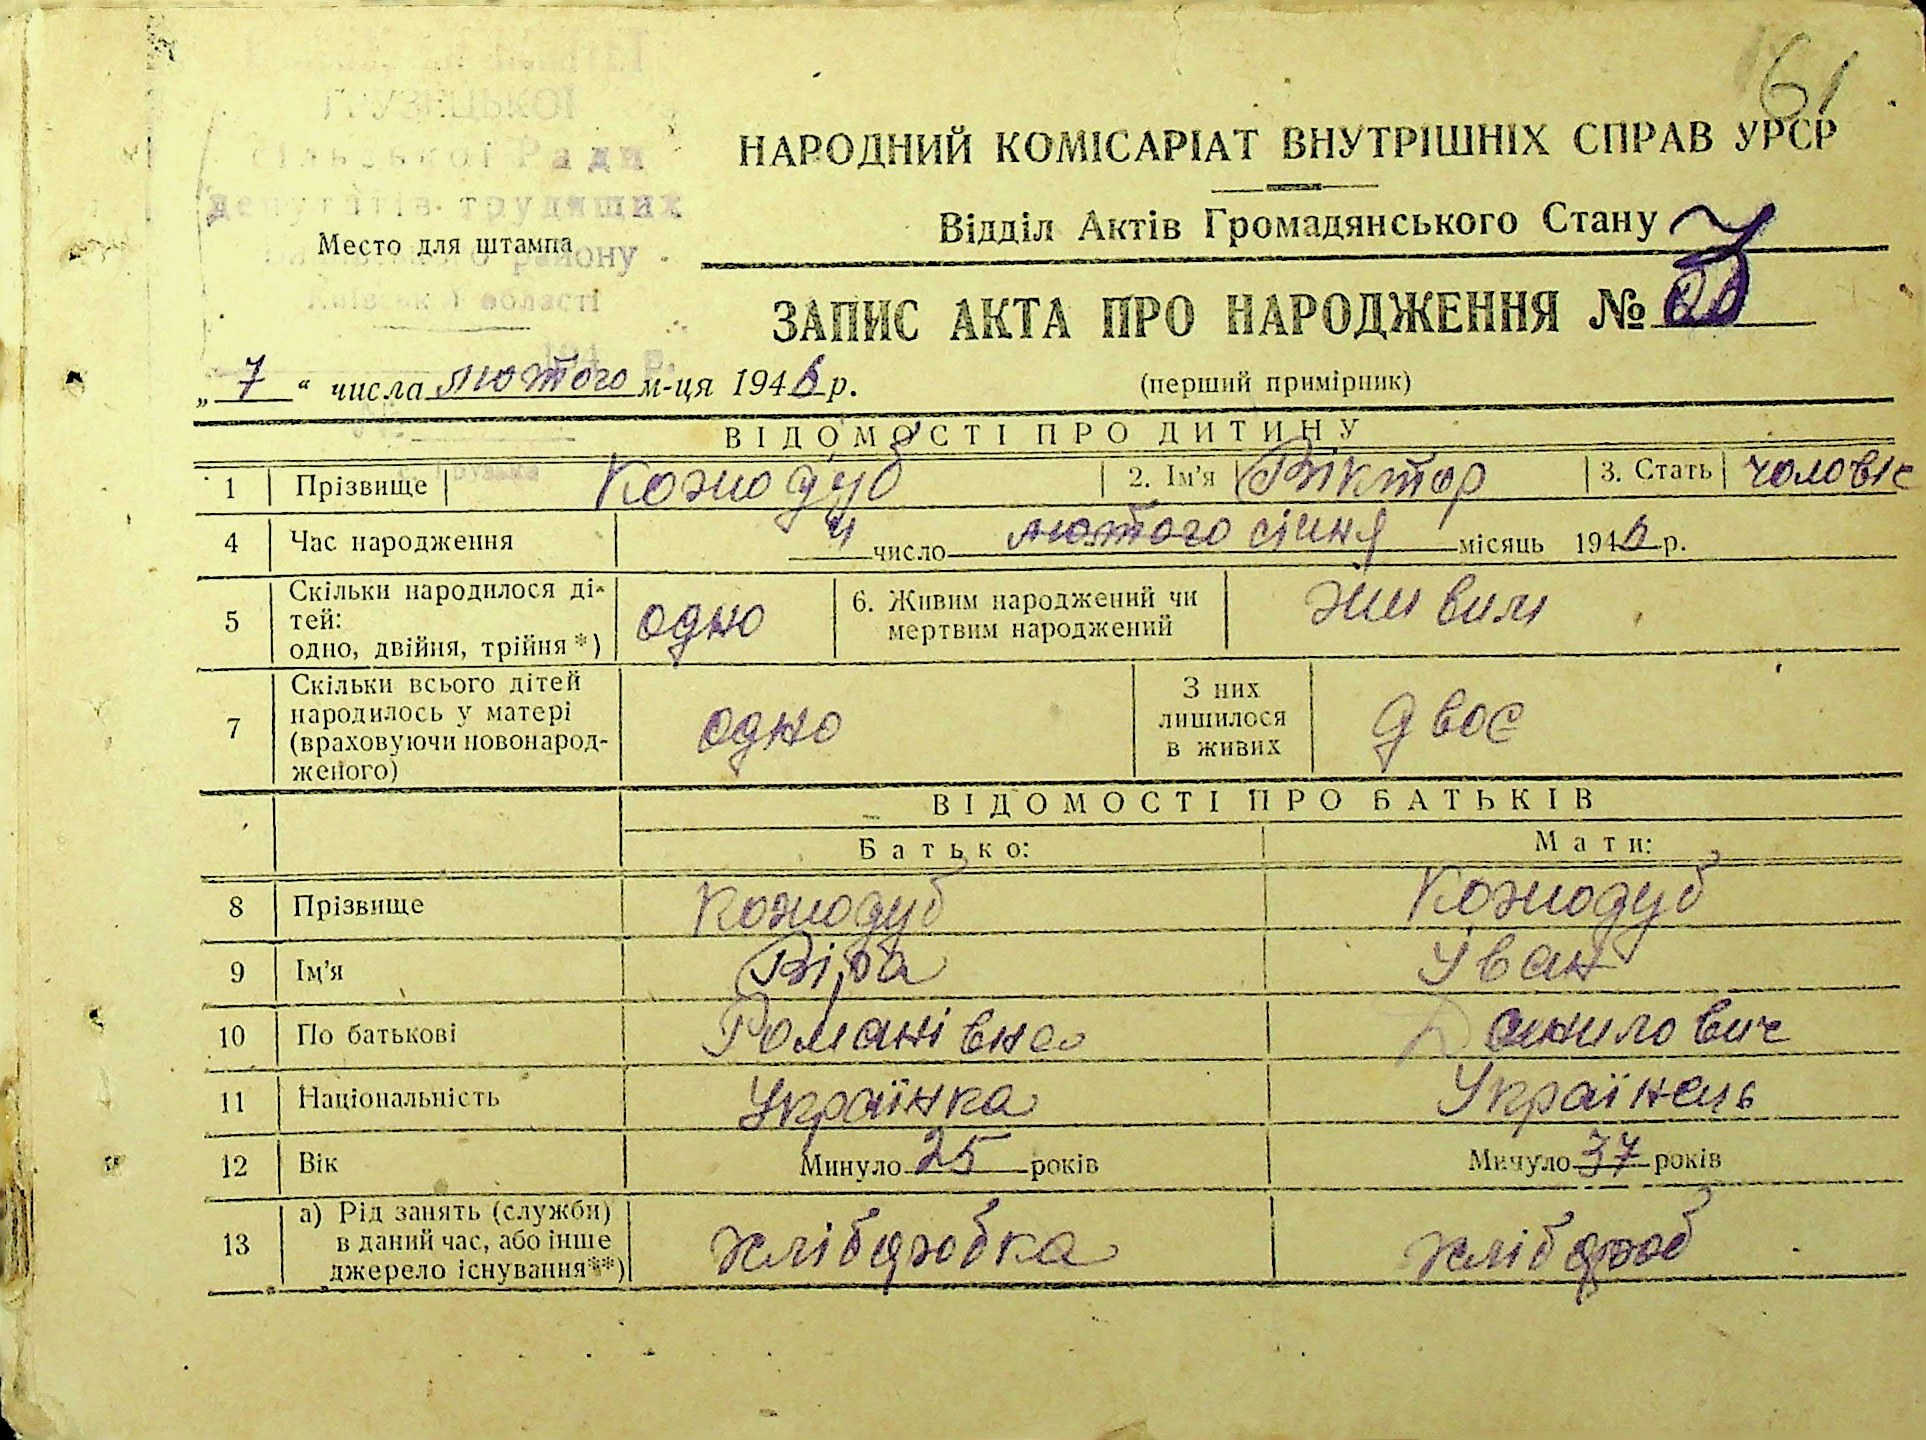 61
ГРУЗЕЦЬКОЇ
сільської Ради
депутатів трудящих
району
області
Место для штампа
НАРОДНИЙ КОМІСАРІАТ ВНУТРІШНІХ СПРАВ УРСР
Відділ Актів Громадянського Стану
ЗАПИС АКТА ПРО НАРОДЖЕННЯ №
„ 7 “ числа лютого м-ця 1946 р.
(перший примірник)
ВІДОМОСТІ ПРО ДИТИНУ
1 Прізвище Кожодуб 2. Ім'я Віктор 3. Стать чоловіс
4 Час народження 4 число лютого січня місяць 1946 р.
5 Скільки народилося ді-
тей:
одно, двійня, трійня *) одно 6. Живим народжений чи
мертвим народжений живим
7 Скільки всього дітей
народилось у матері
(враховуючи новонарод-
женого) одно З них
лишилося
в живих двоє
ВІДОМОСТІ ПРО БАТЬКІВ
Батько: Мати:
8 Прізвище Кожодуб Кожодуб
9 Ім'я Віра Іван
10 По батькові Романівна Данилович
11 Національність Українка Українець
12 Вік Минуло 25 років Минуло 37 років
13 а) Рід занять (служби)
в даний час, або інше
джерело існування**) хлібороб